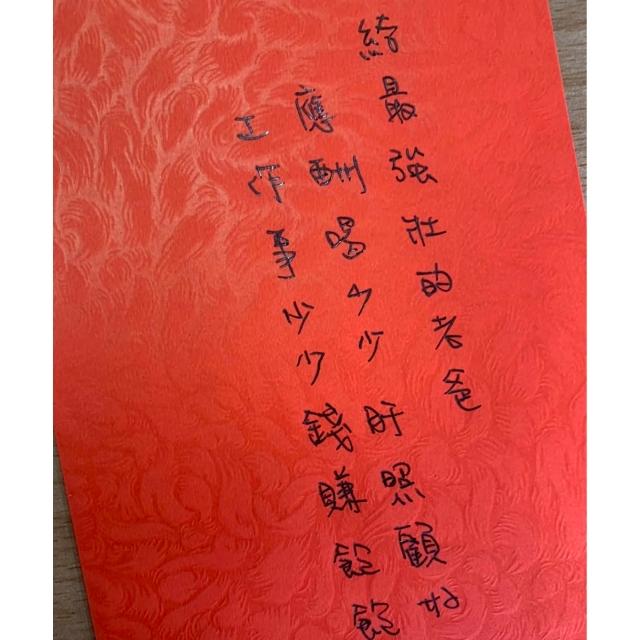 給最強壯的老爸
應酬喝少少 肝照顧好
工作事少少 錢賺飽飽